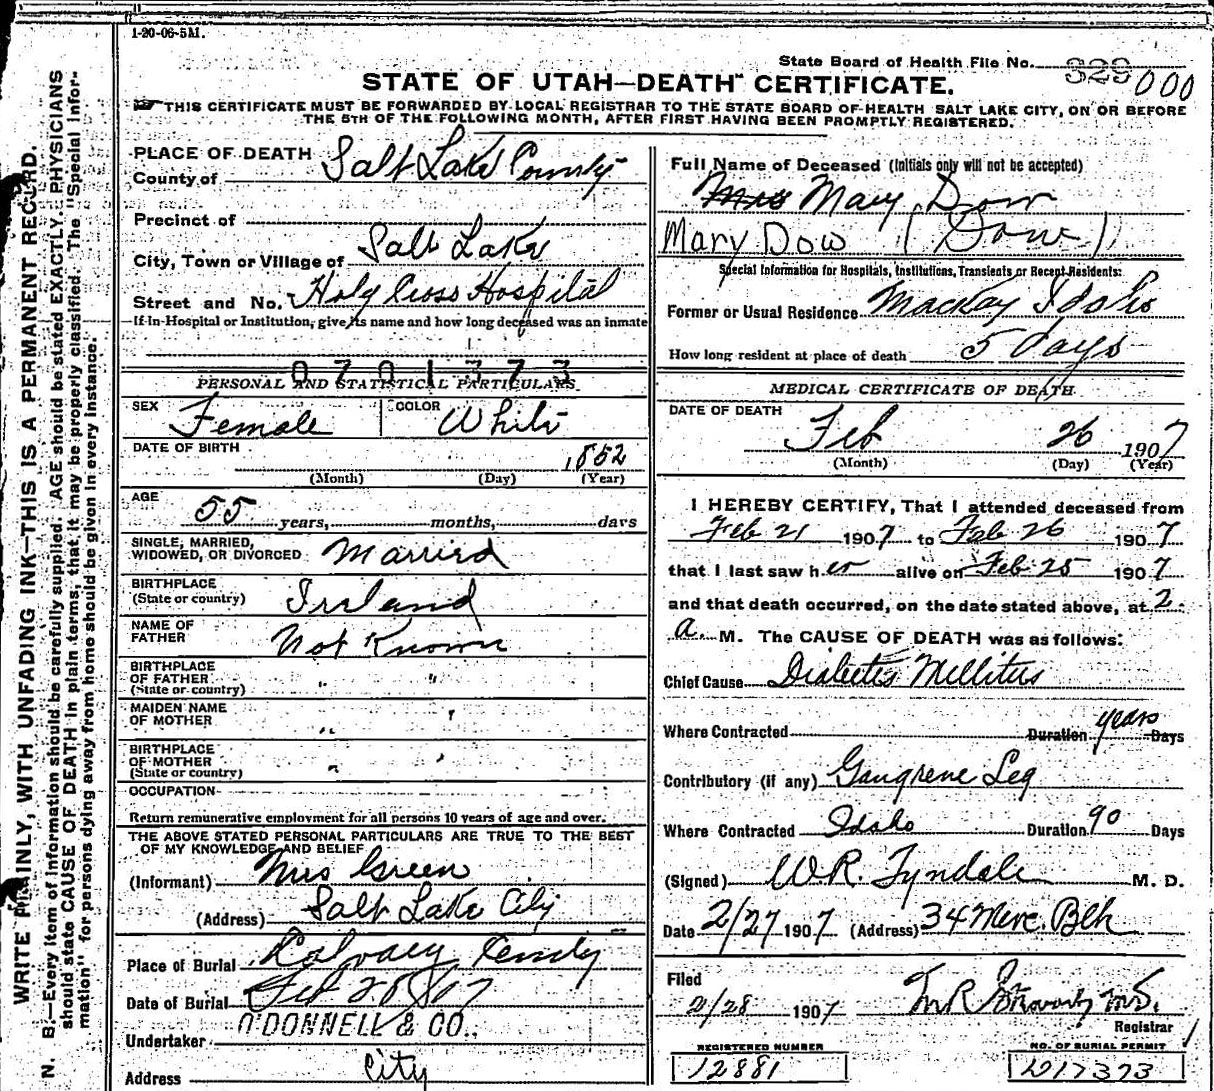 1-20-06-5M.
State Board of Health File No. 329 000
STATE OF UTAH—DEATH CERTIFICATE.
THIS CERTIFICATE MUST BE FORWARDED BY LOCAL REGISTRAR TO THE STATE BOARD OF HEALTH SALT LAKE CITY, ON OR BEFORE
THE 5TH OF THE FOLLOWING MONTH, AFTER FIRST HAVING BEEN PROMPTLY REGISTERED.
WRITE PLAINLY, WITH UNFADING INK—THIS IS A PERMANENT RECORD.
N. B.—Every item of information should be carefully supplied. AGE should be stated EXACTLY. PHYSICIANS
should state CAUSE OF DEATH in plain terms, that it may be properly classified. The "Special Infor-
mation" for persons dying away from home should be given in every instance.
PLACE OF DEATH
County of Salt Lake County
Precinct of
City, Town or Village of Salt Lake
Street and No. Holy Cross Hospital
If in Hospital or Institution, give its name and how long deceased was an inmate
0701373
PERSONAL AND STATISTICAL PARTICULARS
SEX Female COLOR White
DATE OF BIRTH 1852
(Month) (Day) (Year)
AGE
55 years, months, days
SINGLE, MARRIED,
WIDOWED, OR DIVORCED Married
BIRTHPLACE
(State or country) Ireland
NAME OF
FATHER Not Known
BIRTHPLACE
OF FATHER " "
(State or country)
MAIDEN NAME
OF MOTHER " "
BIRTHPLACE
OF MOTHER " "
(State or country)
OCCUPATION
Return remunerative employment for all persons 10 years of age and over.
THE ABOVE STATED PERSONAL PARTICULARS ARE TRUE TO THE BEST
OF MY KNOWLEDGE AND BELIEF
(Informant) Mrs Green
(Address) Salt Lake City
Place of Burial Calvary Cemty
Date of Burial Feb 28 1907
Undertaker O'DONNELL & CO.,
Address City
Full Name of Deceased (Initials only will not be accepted)
Mrs Mary Dow
Mary Dow (Dow)
Special Information for Hospitals, Institutions, Transients or Recent Residents:
Former or Usual Residence Mackay Idaho
How long resident at place of death 5 days
MEDICAL CERTIFICATE OF DEATH
DATE OF DEATH
Feb 26 1907
(Month) (Day) (Year)
I HEREBY CERTIFY, That I attended deceased from
Feb 21 1907 to Feb 26 1907
that I last saw her alive on Feb 25 1907
and that death occurred, on the date stated above, at 2
a. M. The CAUSE OF DEATH was as follows:
Chief Cause Diabetes Mellitus
Where Contracted Duration years Days
Contributory (if any) Gangrene Leg
Where Contracted Idaho Duration 90 Days
(Signed) W.R. Tyndale M. D.
Date 2/27 1907 (Address) 34 Merc. Blk
Filed
2/28 1907 M.D.
Registrar
REGISTERED NUMBER NO. OF BURIAL PERMIT
12881